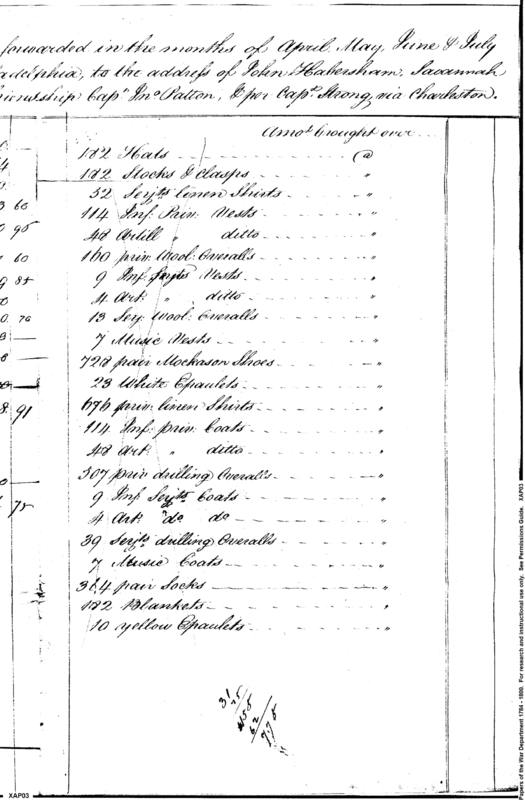 forwarded in the months of April, May, June & July
adelphia, to the address of John Habersham, Savannah
riendship Capt. Jno. Patton, & per Capt. Strong, via Charleston.
Amot. brought over
182 Hats @
182 Stocks & clasps "
52 Serjts. linen Shirts "
114 Inf: Priv: Vests "
48 Artill " ditto "
160 priv: Wool: Overalls "
9 Inf: Serjts Vests "
4 Art: " ditto "
13 Serj: Wool: Overalls "
7 Music Vests "
728 pair Mockason Shoes "
23 White Epaulets "
676 priv: linen Shirts "
114 Inf: priv: Coats "
48 Art: " ditto "
307 priv drilling Overalls "
9 Inf Serjts Coats "
4 Art: do do "
39 Serjts. drilling Overalls "
7 Music Coats "
364 pair Socks "
182 Blankets "
10 yellow Epaulets "
60
95
60
85
76
8
91
75
31
75
62
778
XAP03
Papers of the War Department 1784 - 1800. For research and instructional use only. See Permissions Guide. XAP03